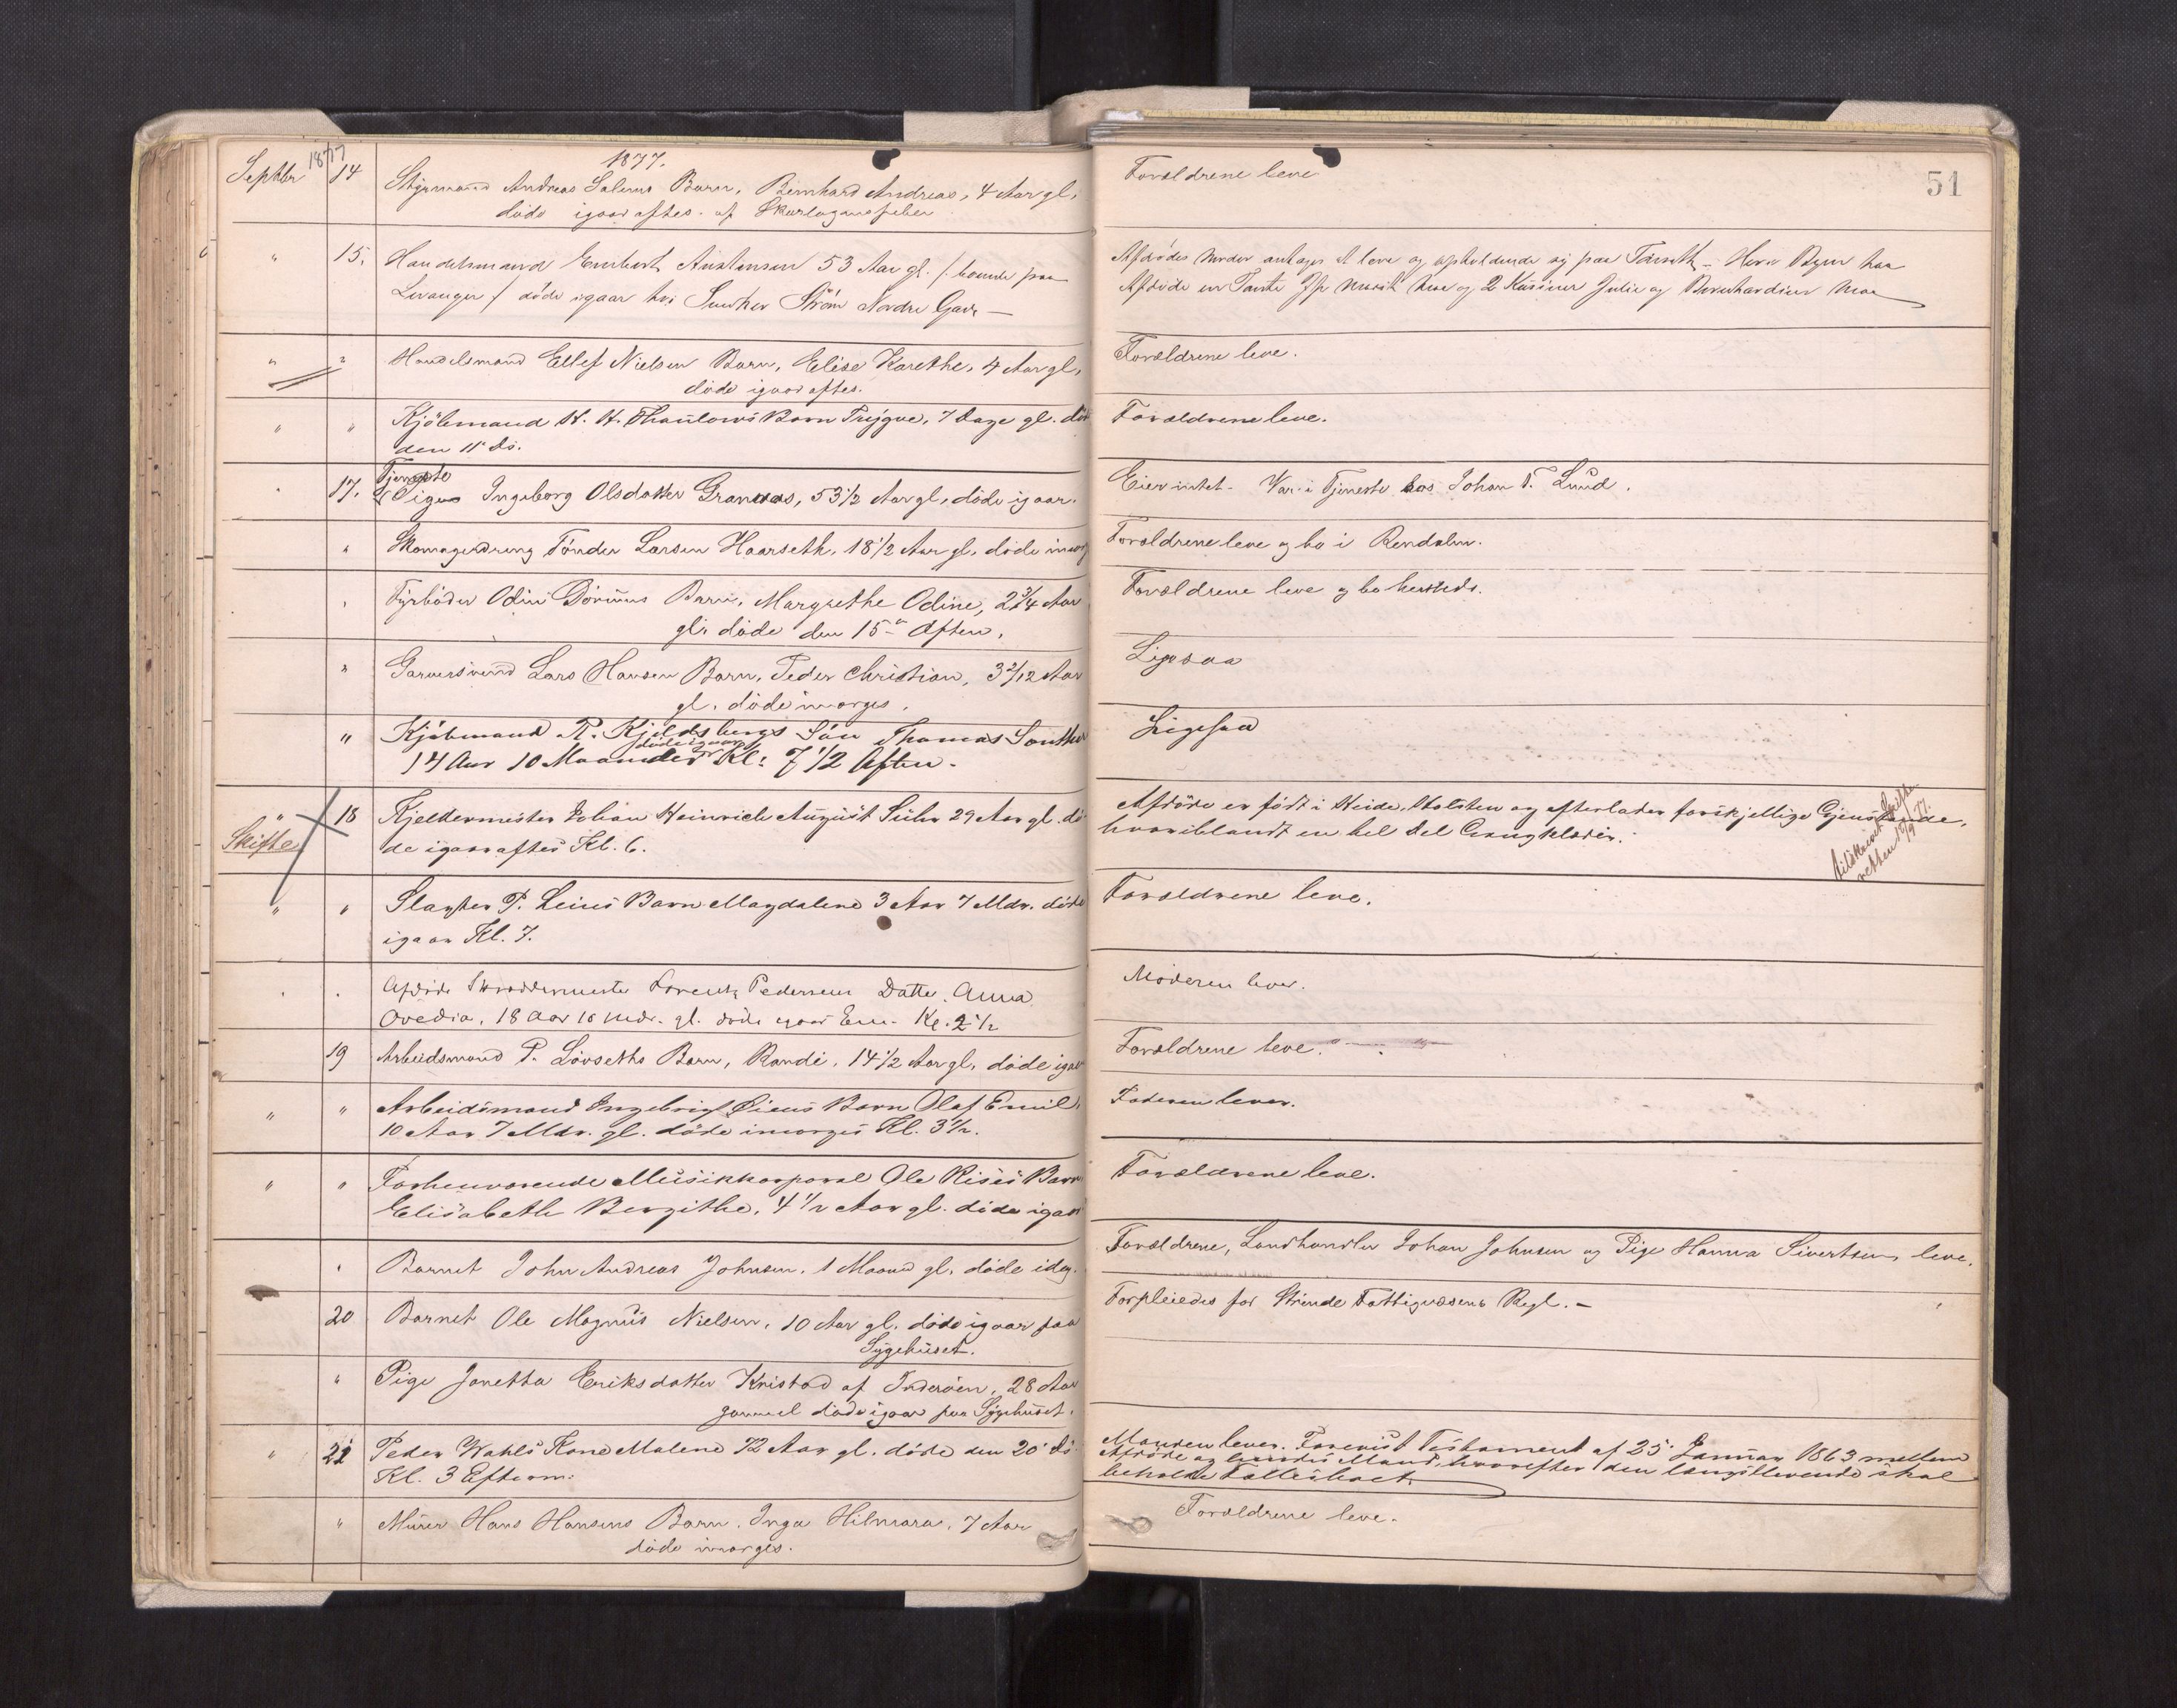 1877
1877.
51
Septbr 14 Styrmand Andreas Salens Barn, Bernhard Andreas, 4 Aar gl,
døde igaar aftes. af Skarlagensfeber
Forældrene leve
" 15. Handelsmand Austensen 53 Aar gl. /: boende paa
Levanger :/ døde igaar hos Snedker Strøm Nordre Gade
Afdødes Moder antages at leve og opholdende sig paa Her i Byen har
Afdøde en Tante og 2 Kusiner Julie og Bernhardine Moe
" " Handelsmand Ellef Nielsen Barn, Elise Karethe, 4 Aar gl,
døde igaar aftes.
Forældrene leve.
" " Kjøbmand H. H. Thaulows Barn Trygve, 7 Dage gl. død
den 11' ds.
Forældrene leve.
17. Tjeneste
Pige Ingeborg Olsdatter Granaas, 53 1/2 Aar gl, døde igaar.
Eier intet. Var i Tjeneste hos Johan T. Lund.
" Skomagerdreng Tønder Larsen Haarseth, 18 1/2 Aar gl, døde imorg
Forældrene leve og bo i Rendalen.
Fyrbøder Odin Barn, Margrethe Odine, 2 3/4 Aar
gl. døde den 15de Aften.
Forældrene leve og bo hersteds.
" Garversvend Lars Hansen Barn, Peder Christian, 3 2/12 Aar
gl. døde imorges.
Ligesaa
" Kjøbmand R. Kjeldsbergs Søn Thomas
døde igaar
14 Aar 10 Maaneder Kl: 7 1/2 Aften.
Ligesaa
" 18 Kjeldermester Johan Heinrich August Suhr 29 Aar gl. dø-
Skifte
de igaar aftes Kl. 6.
Afdøde er født i Heide, Holsten og efterlader forskjellige Gjenstande,
hvoriblandt en hel Del Gangklæder.
Tilskrevet Skifte-
retten 18/9 77.
" " Slagter P. Leins Barn Magdalene 3 Aar 7 Mdr. døde
igaar Kl. 7.
Forældrene leve.
Afdøde Skræddermester Lorentz Pedersens Datter Anna
Ovedia, 18 Aar 10 Mdr. gl. døde igaar Em. Kl. 2 1/2
Moderen lever.
19 Arbeidsmand P. Løvseths Barn, Randi, 14 1/2 Aar gl, døde igaar
Forældrene leve.
" " Arbeidsmand Ingebrigt Øiens Barn Olaf Emil,
10 Aar 7 Mdr. gl. døde imorges Kl. 3 1/2.
Faderen lever.
" " Forhenværende Musikkorporal Ole Rises Barn
Elisabeth Bergithe, 4 1/2 Aar gl. døde igaar
Forældrene leve.
Barnet John Andreas Johnsen, 1 Maaned gl, døde idag.
Forældrene, Landhandler Johan Johnsen og Pige Hanna Sivertsen, leve.
20 Barnet Ole Magnus Nielsen, 10 Aar gl. døde igaar paa
Sygehuset.
Forpleiedes for Strinde Fattigvæsens Regl. -
" Pige Janetta Eriksdatter Kristad af Inderøen, 28 Aar
gammel døde igaar paa Sygehuset.
" 21 Peder Wahls Kone Malene 72 Aar gl. døde den 20' ds
Kl. 3 Efterm:
Manden lever. Forevist Testament af 25. Januar 1863 mellem
Afdøde og hendes Mand, hvorefter den længstlevende skal
beholde Fællesboet.
" Murer Hans Hansens Barn, Inga Hilmara, 7 Aar
døde imorges.
Forældrene leve.